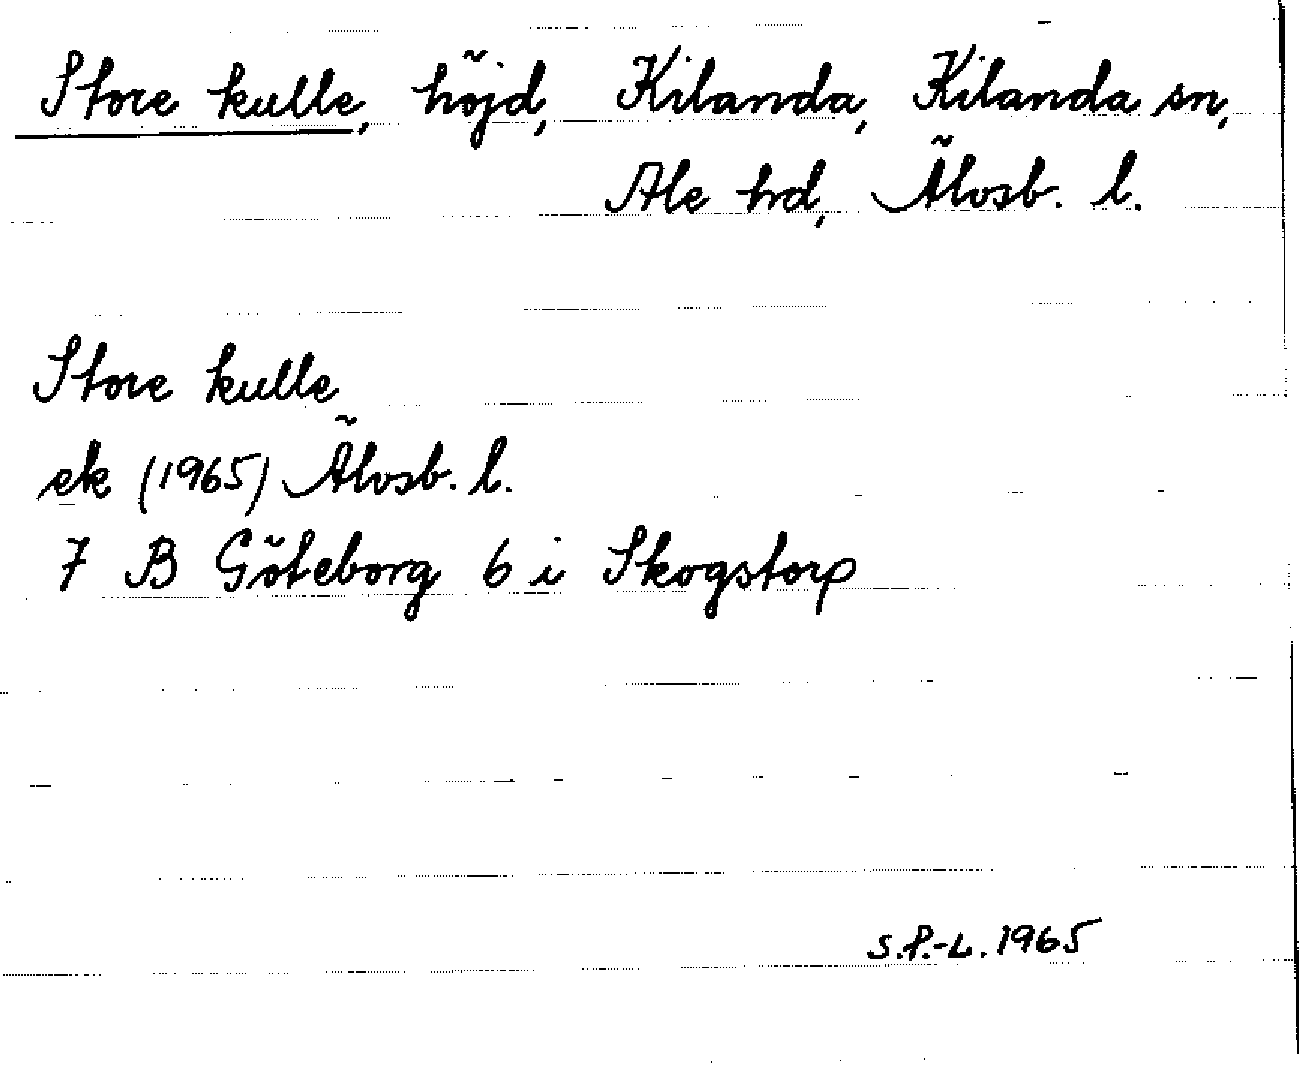 Store kulle, höjd, Kilanda, Kilanda sn,
Ale hd, Älvsb. l.
Store kulle
ek (1965) Älvsb. l.
7 B Göteborg 6 i Skogstorp
S.P.-L. 1965